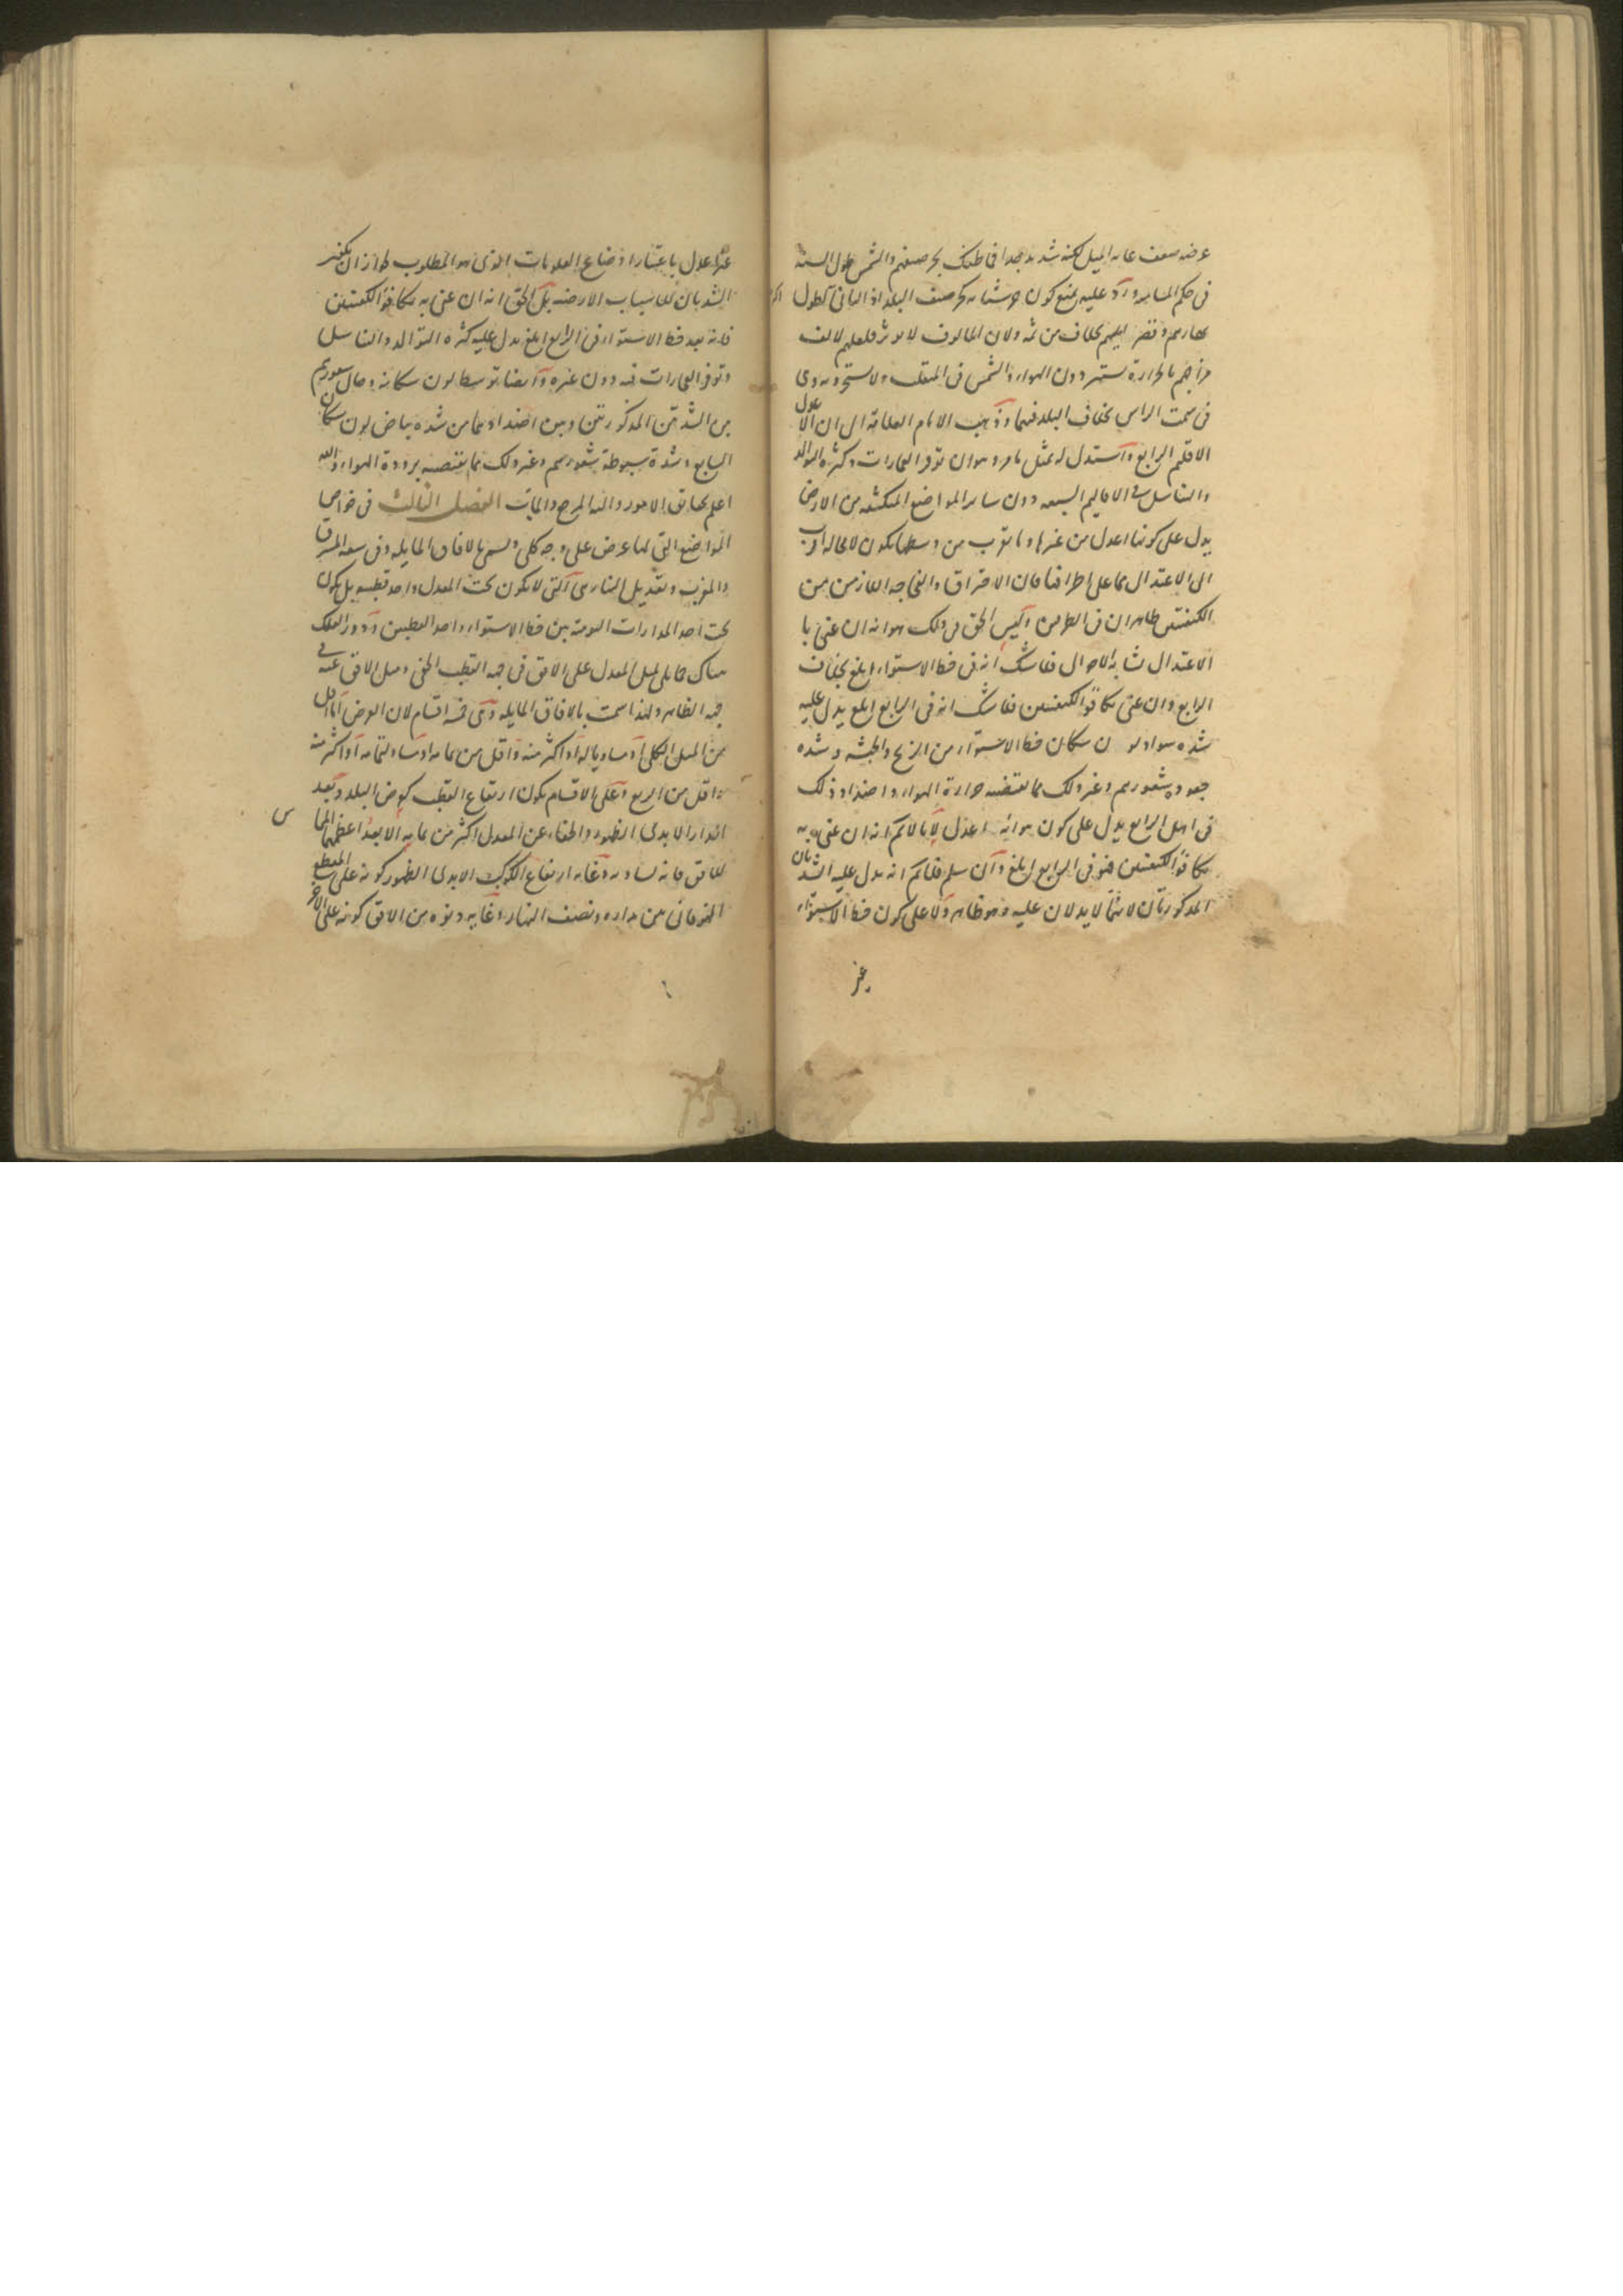 عرضه ضعف غايه الميل لكنه شديد جدا فما ظنك بحر صيفهم والشمس طول السنه
فى حكم المسامه ورد عليه بمنع كون حر شتائه كحر صيف البلد اذ الثانى لطول
نهارهم وقصر ليلهم بخلاف من ثمه ولان المالوف لا يوثر فلعلهم لالف
مزاجهم بالحرارة يستبردون الهواء والشمس فى المنقلب ولا يستحرونه وهى
فى سمت الراس بخلاف البلد فيهما وذهب الامام العلامة الى ان الاعدل
الاقليم الرابع واستدل له بمثل ما مر وهو ان توفر العمارات وكثرة التوالد
والتناسل فى الاقاليم السبعه دون ساير المواضع المنكشفه من الارض
يدل على كونها اعدل من غيرها وما يقرب من وسطها يكون لا محاله اقرب
الى الاعتدال مما على اطرافها فان الاحتراق والفجاجه اللازمين من
الكيفيتين ظاهران فى الطرفين وليس الحق فى ذلك هو انه ان عنى با
الاعتدال تشابه الاحوال فلا شك انه فى خط الاستواء ابلغ بخلاف
الرابع وان عنى تكافؤ الكيفيتين فلا شك انه فى الرابع ابلغ يدل عليه
شدة سواد لون سكان خط الاستواء من الزنج والحبشه وشده
جعوده شعورهم وغير ذلك مما يقتضيه حرارة الهواء واضداد ذلك
فى اهل الرابع يدل على كون هوائه اعدل لا يقال لانم انه ان عنى به
تكافؤ الكيفيتين فهو فى الرابع ابلغ وان سلم فلا نم انه يدل عليه الشدتان
المذكورتان لانهما لا يدلان عليه وهو ظاهر ولا على كون خط الاستواء
غير
غير اعدل باعتبار اوضاع العلويات الذى هو المطلوب لجواز ان يكون
الشدتان للاسباب الارضيه بل الحق انه ان عنى به تكافؤ الكيفيتين
فانه بعد خط الاستواء فى الرابع ابلغ يدل عليه كثرة التوالد والتناسل
وتوفر العمارات فيه دون غيره وايضا توسط لون سكانه وحال شعورهم
بين الشدتين المذكورتين وبين اضدادهما من شده بياض لون سكان
السابع وشدة سبوطة شعورهم وغير ذلك مما يقتضيه برودة الهواء والله
اعلم بحقايق الامور واليه المرجع والمآب الفصل الثالث فى خواص
المواضع التى لها عرض على وجه كلى وتسمى بالافاق المايله وفى سعه المشرق
والمغرب وتعديل النهار هى التى لا يكون تحت المعدل واحد قطبيه بل يكون
تحت احد المدارات اليوميه بين خط الاستواء واحد القطبين ودور الفلك
هناك حمايلى لميل المعدل على الافق فى جهه القطب الخفى وميل الافق عنه فى
جهه الظاهر ولهذا سميت بالافاق المايله وهى خمسه اقسام لان العرض اما اقل
من الميل الكلى او مساويا له او اكثر منه واقل من تمامه او مساو لتمامه او اكثر منه
واقل من الربع وعلى الاقسام يكون ارتفاع القطب كعرض البلد وبعد
المدار الابدى الظهور والخفاء عن المعدل اكثر من تمامه الا بعد اعظمهما المماس
للافق فانه يساويه وغايه ارتفاع الكوكب الابدى الظهور كونه على التقاطع
الفوقانى من مداره ونصف النهار وغايه دنوه من الافق كونه على الاخر